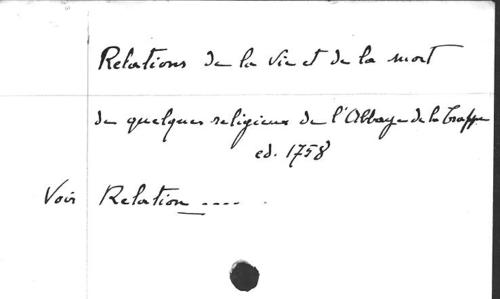 Relations de la vie et de la mort
de quelques religieux de l'Abbaye de la Trappe
ed. 1758
Voir Relation ....